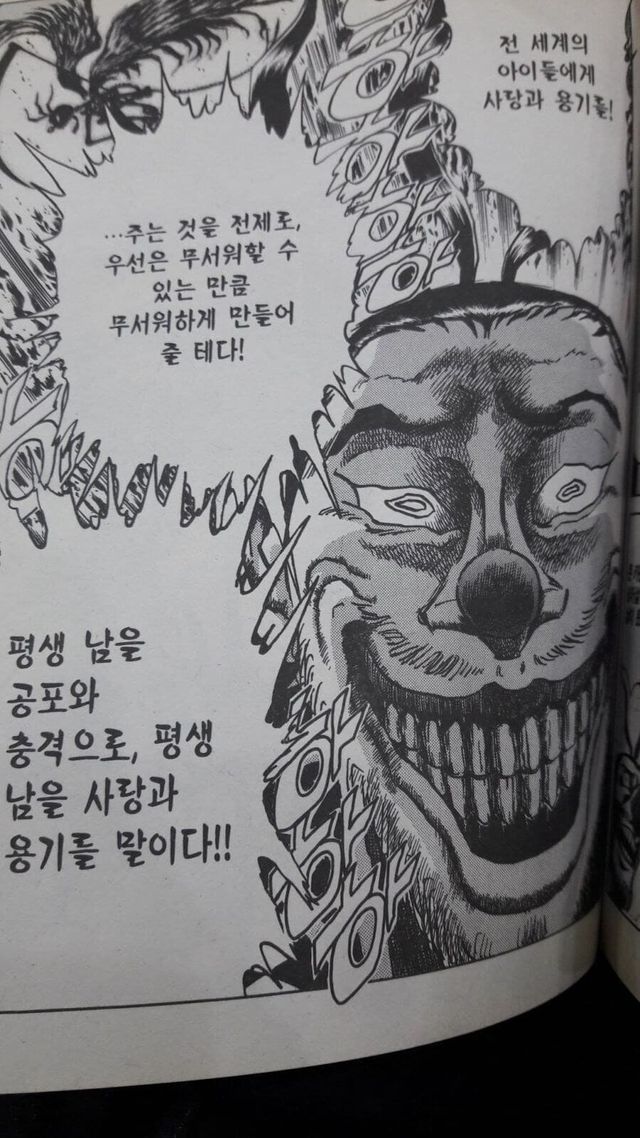 전 세계의
아이들에게
사랑과 용기를!
…주는 것을 전제로,
우선은 무서워할 수
있는 만큼
무서워하게 만들어
줄 테다!
평생 남을
공포와
충격으로, 평생
남을 사랑과
용기를 말이다!!